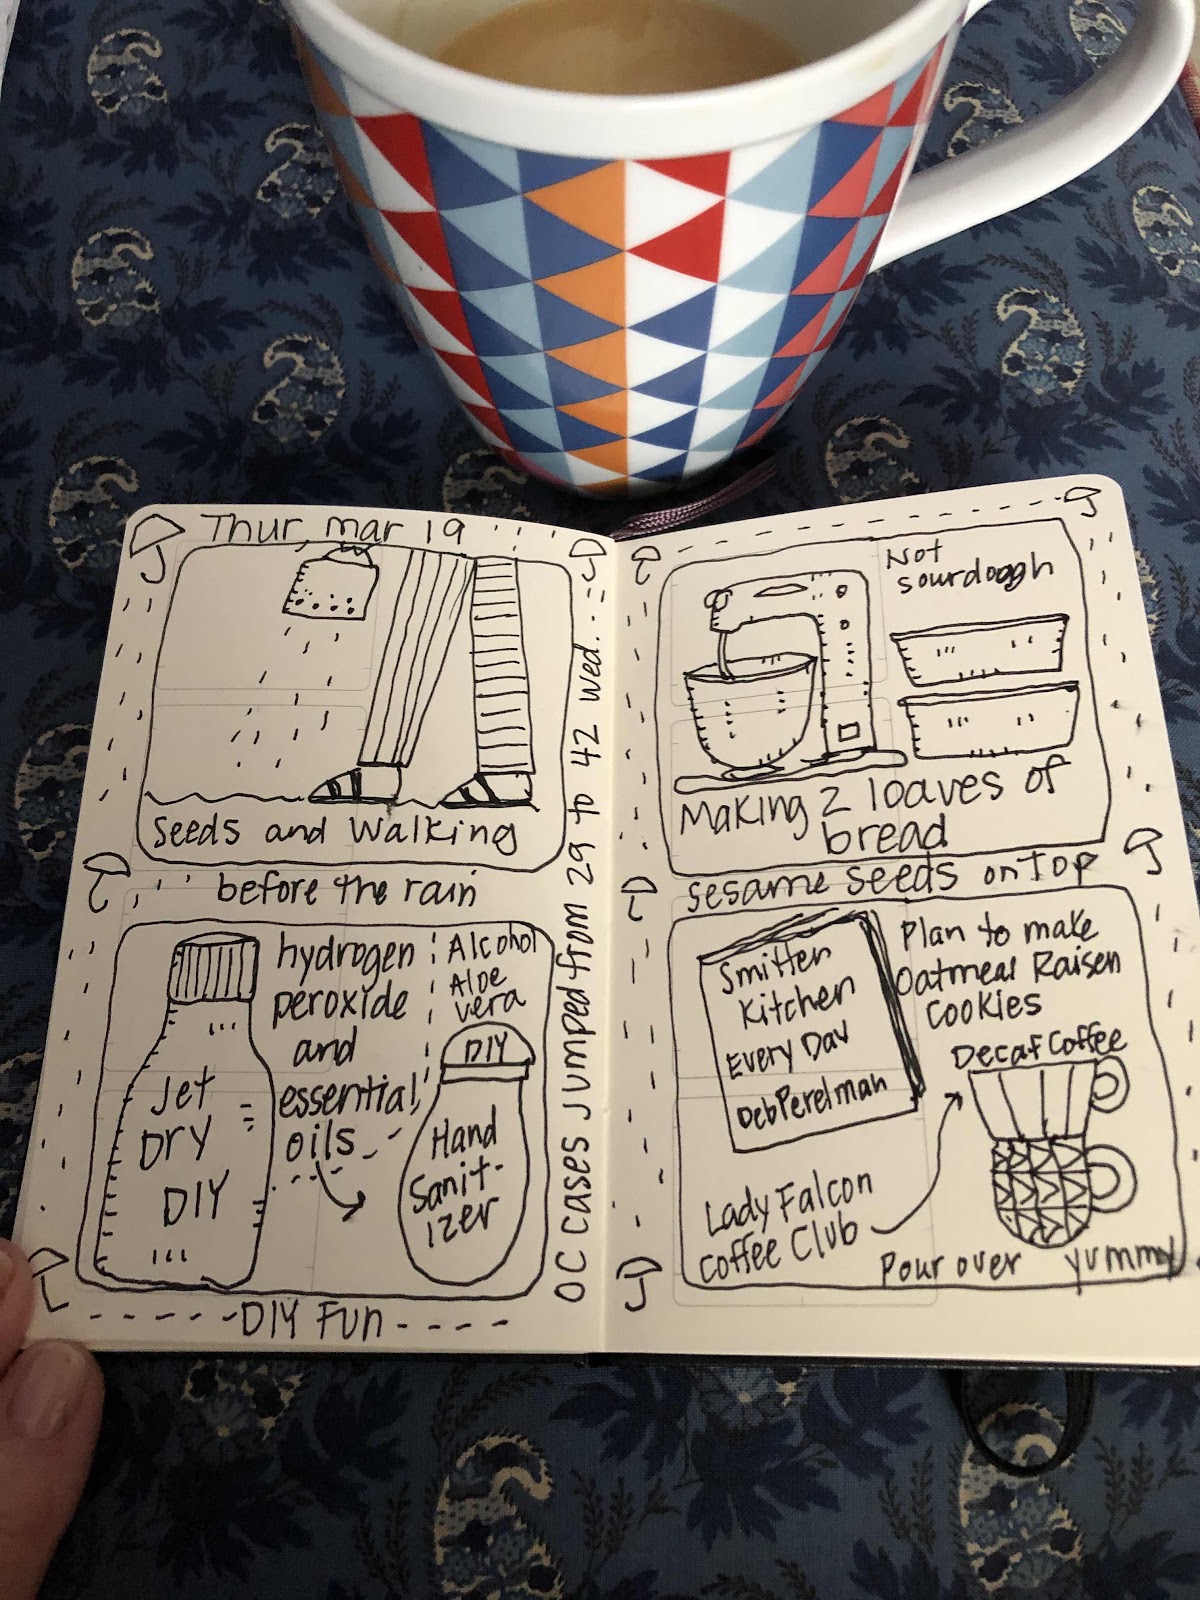 Thur, mar 19
Seeds and Walking
before the rain
Jet
DRY
DIY
hydrogen
peroxide
and
essential
oils
Alcohol
Aloe
vera
DIY
Hand
Sanit-
izer
DIY Fun
OC cases jumped from 29 to 42 wed.
Not
sourdough
Making 2 loaves of
bread
Sesame seeds on Top
Smitten
Kitchen
Every Day
Deb Perelman
Plan to make
Oatmeal Raisen
Cookies
Decaf Coffee
Lady Falcon
Coffee Club
Pour over yummy